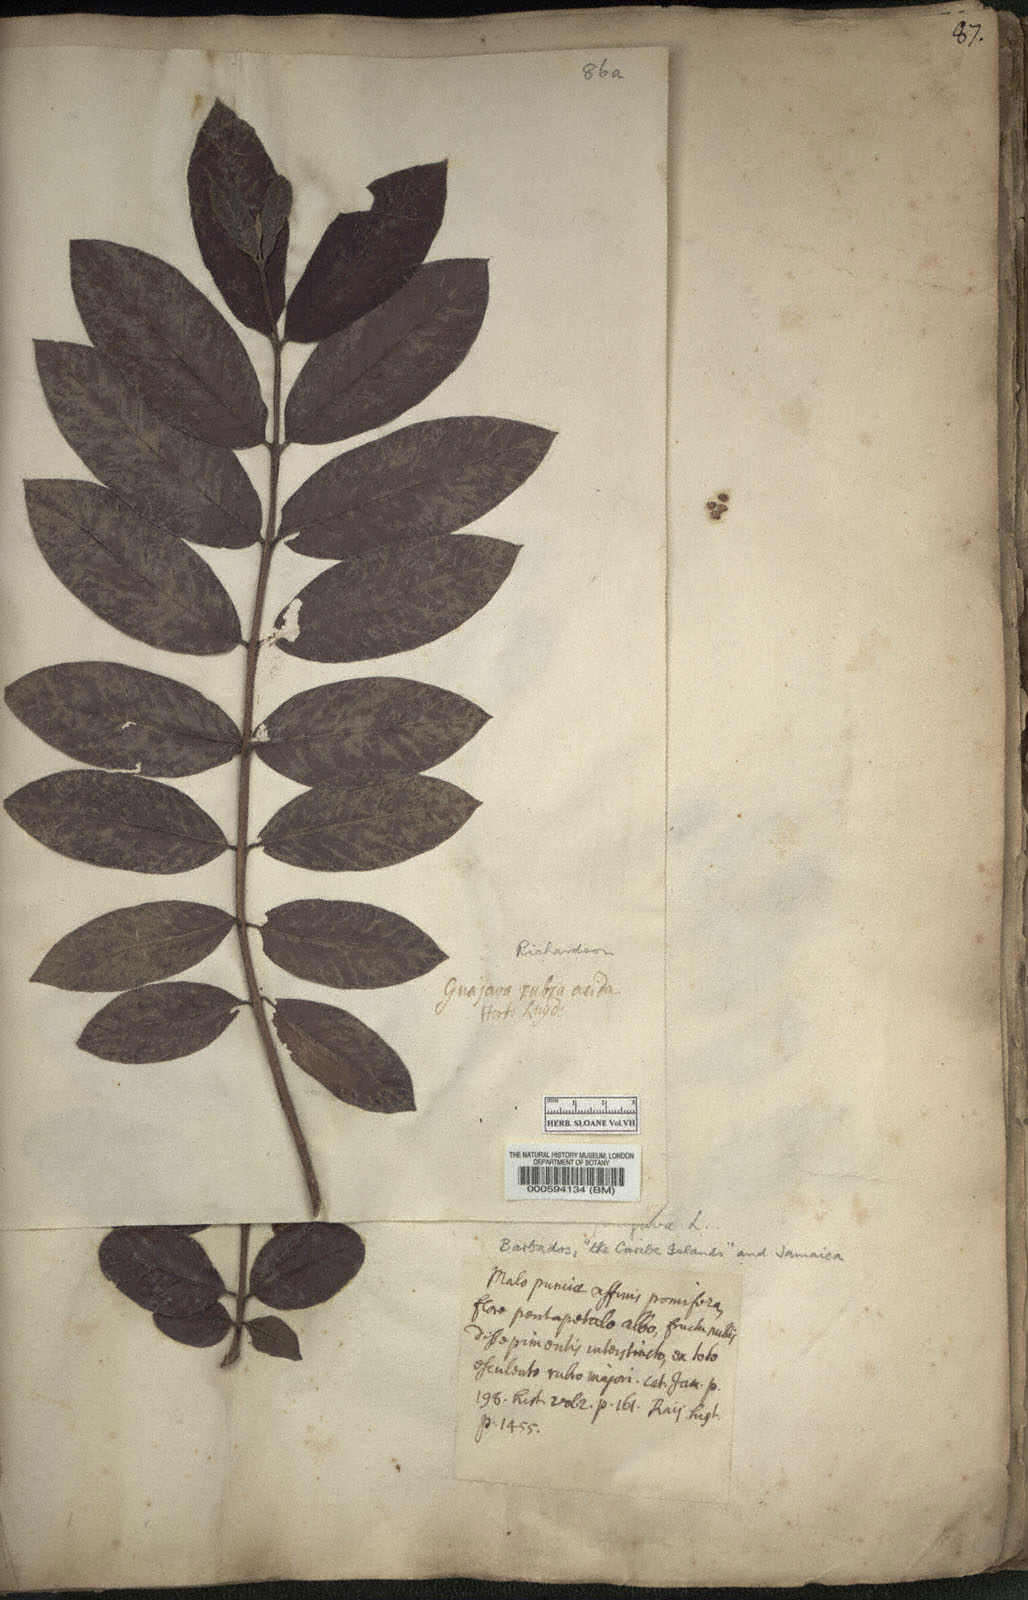 87.
86a
Richardson
Guajava rubra acida
Horti Lugd:
mm 1 2 3
HERB. SLOANE Vol.VII
THE NATURAL HISTORY MUSEUM, LONDON
DEPARTMENT OF BOTANY
000594134 (BM)
L.
Barbados, "the Caribe Islands" and Jamaica
Malo punicæ affinis pomifera,
flore pentapetalo albo, fructu nullis
dissepimentis interstincto, ex toto
esculento rubro majori. Cat. Jam. p.
198. hist. vol 2. p. 161. Raij hist.
p. 1455.